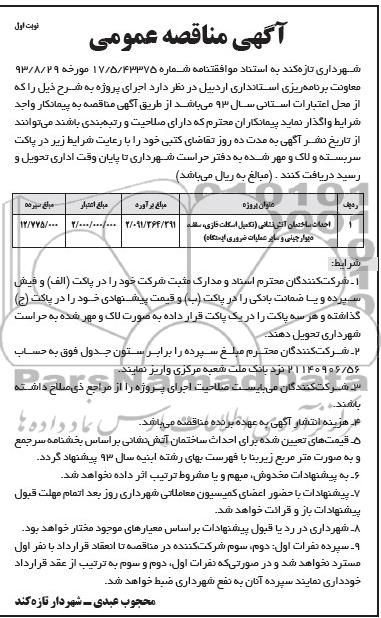 نوبت اول
آگهی مناقصه عمومی
شهرداری تازه‌کند به استناد موافقتنامه شماره ۱۷/۵/۴۳۳۷۵ مورخه ۹۳/۸/۲۹
معاونت برنامه‌ریزی استانداری اردبیل در نظر دارد اجرای پروژه به شرح ذیل را که
از محل اعتبارات استانی سال ۹۳ می‌باشد از طریق آگهی مناقصه به پیمانکار واجد
شرایط واگذار نماید پیمانکاران محترم که دارای صلاحیت و رتبه‌بندی باشند می‌توانند
از تاریخ نشر آگهی به مدت ده روز تقاضای کتبی خود را با رعایت شرایط زیر در پاکت
سربسته و لاک و مهر شده به دفتر حراست شهرداری تا پایان وقت اداری تحویل و
رسید دریافت کنند . (مبالغ به ریال می‌باشد)
ردیف عنوان پروژه مبلغ برآورد مبلغ اعتبار مبلغ سپرده
۱ احداث ساختمان آتش‌نشانی (تکمیل اسکلت فلزی، سقف، ۲/۰۹۱/۳۶۴/۳۹۱ ۲/۰۰۰/۰۰۰/۰۰۰ ۱۲/۷۷۵/۰۰۰
دیوارچینی و سایر عملیات ضروری ایستگاه)
شرایط:
۱ـ شرکت‌کنندگان محترم اسناد و مدارک مثبت شرکت خود را در پاکت (الف) و فیش
سپرده و یا ضمانت بانکی را در پاکت (ب) و قیمت پیشنهادی خود را در پاکت (ج)
گذاشته و هر سه پاکت را در یک پاکت قرار داده به صورت لاک و مهر شده به حراست
شهرداری تحویل دهند.
۲ـ شرکت‌کنندگان محترم مبلغ سپرده را برابر ستون جدول فوق به حساب
۲۱۱۴۰۹۰۶/۵۶ نزد بانک ملت شعبه مرکزی واریز نمایند.
۳ـ شرکت‌کنندگان می‌بایست صلاحیت اجرای پروژه را از مراجع ذی‌صلاح داشته
باشند.
۴ـ هزینه انتشار آگهی به عهده برنده مناقصه می‌باشد.
۵ـ قیمت‌های تعیین شده برای احداث ساختمان آتش‌نشانی براساس بخشنامه سرجمع
و به صورت متر مربع زیربنا با فهرست بهای رشته ابنیه سال ۹۳ پیشنهاد گردد.
۶ـ به پیشنهادات مخدوش، مبهم و یا مشروط ترتیب اثر داده نخواهد شد.
۷ـ پیشنهادات با حضور اعضای کمیسیون معاملاتی شهرداری روز بعد اتمام مهلت قبول
پیشنهادات باز و قرائت خواهد شد.
۸ـ شهرداری در رد یا قبول پیشنهادات براساس معیارهای موجود مختار خواهد بود.
۹ـ سپرده نفرات اول، دوم، سوم شرکت‌کننده در مناقصه تا انعقاد قرارداد با نفر اول
مسترد نخواهد شد و در صورتی‌که نفرات اول، دوم و سوم به ترتیب از عقد قرارداد
خودداری نمایند سپرده آنان به نفع شهرداری ضبط خواهد شد.
محجوب عبدی ـ شهردار تازه‌کند